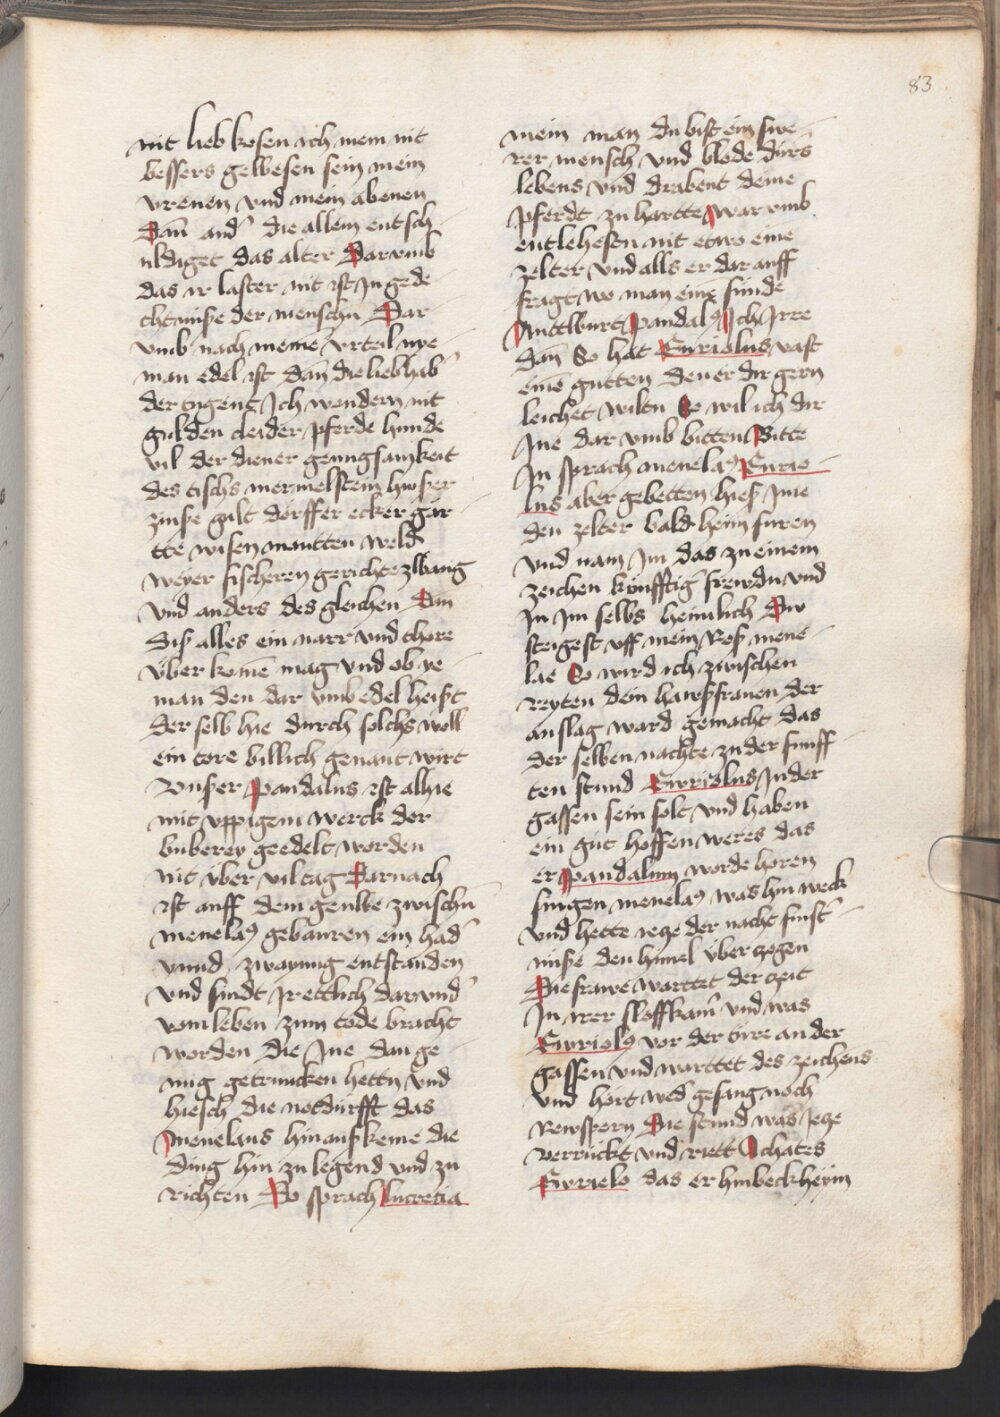 83
nit lieb kosen ich mein nit
bessers gelbesen sein mein
vrenen vnd mein abenen
Dan̄ and' die allein entsch
uldiget das alter Darvmb
das ir laster nit ist In gede
chtnuse der menschn̄ Dar
vmb nach meine vrteil nye
man edel ist dan̄ die liebhab'
der tugent Ich wondern nit
gulden cleider pferde hunde
vil der diener genungsamkeit
des tischs mermelstein hwser
zinse gult dorffer ecker gär
tte wisen mautten weld'
weyer fischeren gerichte zlbang
vnd anders des gleichen Din
dis alles ein narr vnd thore
vber komē mag vnd ob ye
man den dar vmb edel heist
der selb hie durch solchs woll
ein tore billich genant wirt
Vnser pandalus ist alhie
mit vppigem werck der
buberey geedelt worden
nit über vil tag Darnach
ist auff dem genlbe zwischn̄
menelaꝰ gebauren ein had'
vnnd zwayung entstanden
vnd sindt Irettlich darvnd'
vom leben zum tode bracht
worden die Ine dan ge
nug getruncken hettn̄ vnd
hiesch die notdurfft das
menelaus hinaus keme die
ding hin zu legend vnd zu
richten Do sprach lucretia
mein man du bist ein swe
rer mensch vnd blode dirs
lebens vnd drabent deine
pferdt zu hartte war vmb
entlehestn nit etwo eine
zelter vnd alls er dar auff
fragt wo man eine funde
Antlburt pandalꝰ Ich Irre
dan̄ So hat Euriolus vast
einē gutten den er dir gern
leichet wiltu So wil ich dir
Ine dar vmb bitten Bitte
In sprach menelaꝰ Eurio
lus aber gebetten hies Ime
den zelter bald heim furen
vnd nam Im das zu einem
zeichen künfftig' frewdn̄ vnd
In Im selbs heimlich Dw
steigest vff mein Ros mene
lae So wird ich zwischen
reyten dein hawsfrauen der
anslag ward gemacht das
der selben nachte zu der funff
ten stund Ewriolus In der
gassen sein solt vnd haben
ein gut hoffen weres das
er pandalum worde horen
singen menelaꝰ was hin weck
vnd hette ieze der nacht finst'
nuse den himel über zogen
Die frawe warttet der zeit
In irer sloffkam̄ vnd was
Ewriolꝰ vor der türe an der
gassen vnd warttet des zeichens
vnd hort wed' gesang noch
rewspern Die stund was Ieze
verrückt vnd riett Achates
Ewriolo das er hinbeckheim